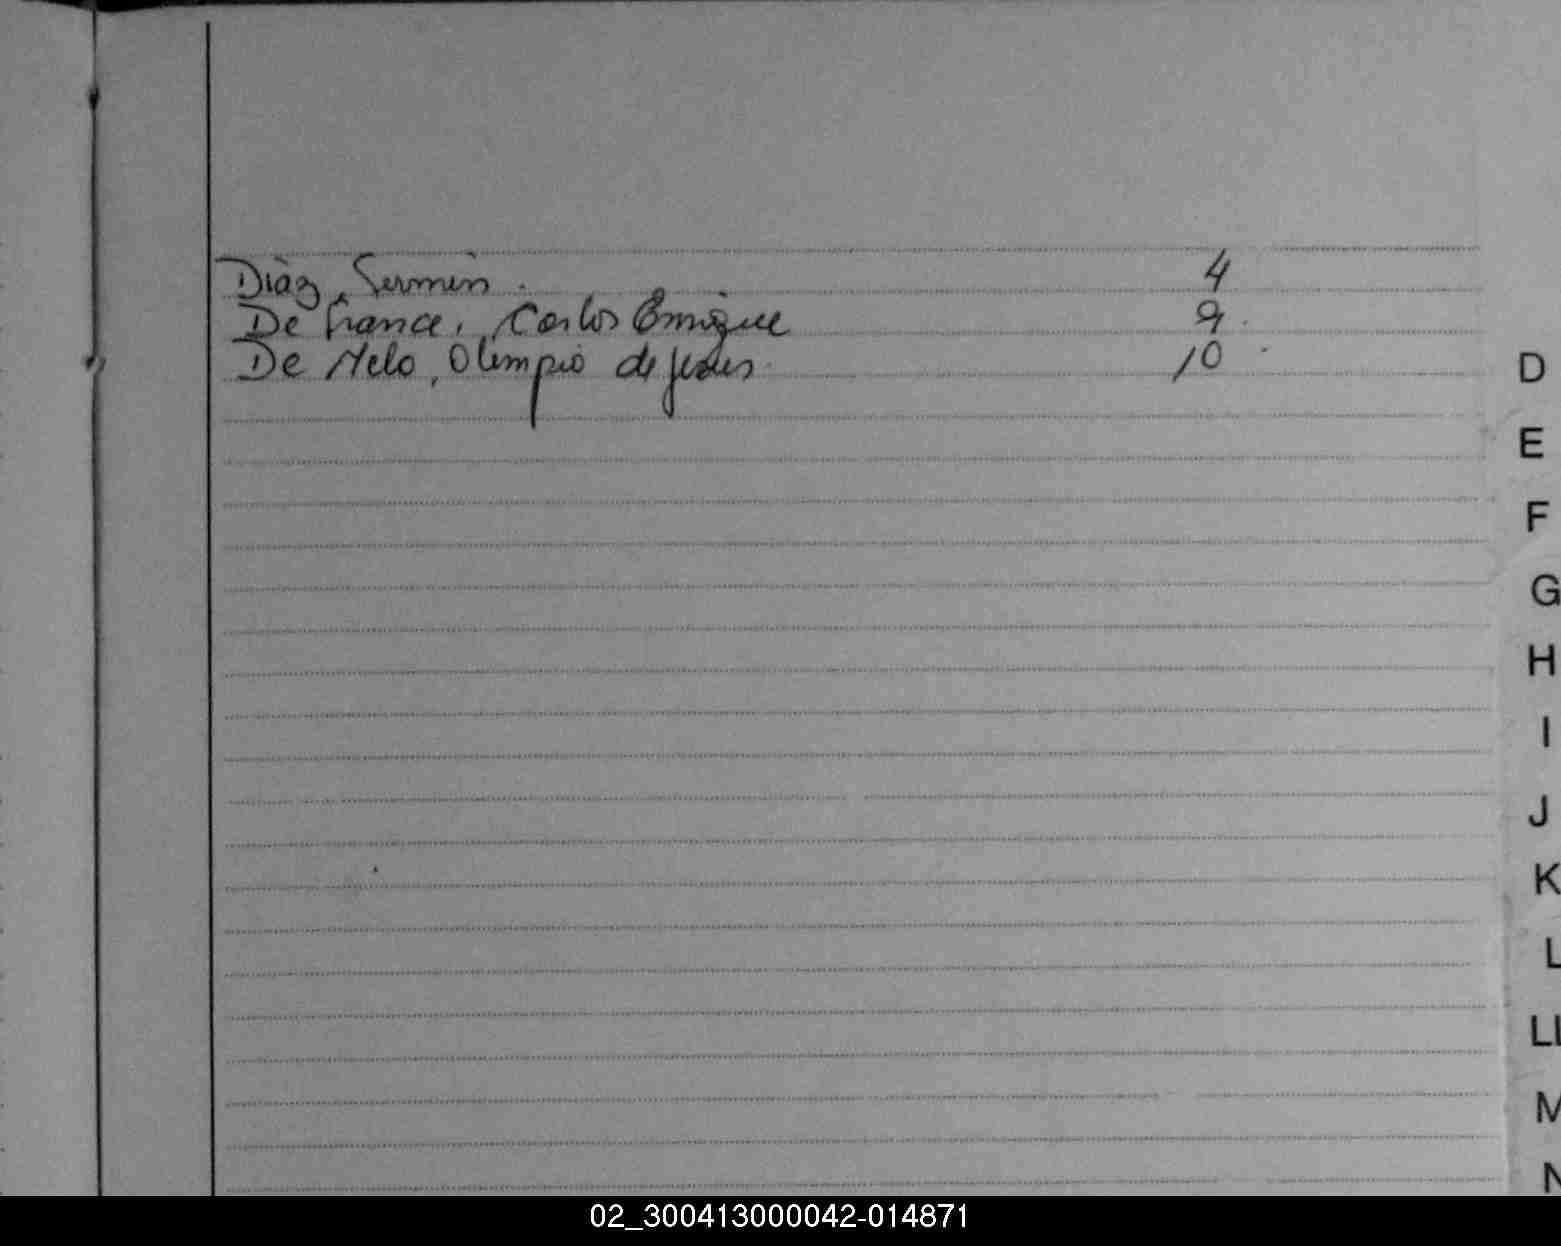 Diaz, Fermin. 4
De franca, Carlos Enrique 9.
De Melo, Olimpio de Jesus. 10.
D
E
F
G
H
I
J
K
L
LL
M
N
02_300413000042-014871